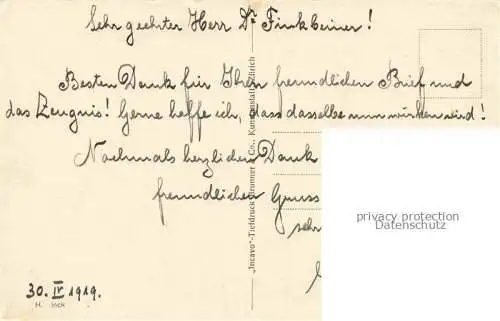 Sehr geehrter Herr Dr. Finkbeiner!
Besten Dank für Ihren freundlichen Brief und
das Zeugnis! Gerne hoffe ich, dass dasselbe nun wirken wird!
Nochmals herzlichen Dank
freundlichen Gruss
sehr
30. IV 1919.
H. Inck
"Incavo"-Tiefdruck Brunner & Co., Kunstanstalt, Zürich
privacy protection
Datenschutz